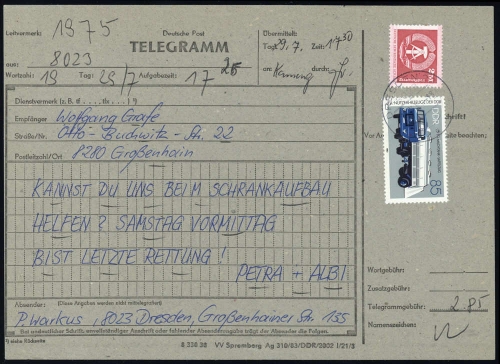 Leitvermerk: 1975
Deutsche Post
TELEGRAMM
Übermittelt:
Tag: 29. 7. Zeit: 1730
aus: 8023
an: durch:
Wortzahl: 19 Tag: 29/7 Aufgabezeit: 17 25
Dienstvermerk (z. B. tf ..., tlx ... ,)
Empfänger Wolfgang Grafe
Straße/Nr. Otto-Buchwitz-Str. 22
Postleitzahl/Ort 8280 Großenhain
KANNST DU UNS BEIM SCHRANKAUFBAU
HELFEN? SAMSTAG VORMITTAG
BIST LETZTE RETTUNG!
PETRA + ALBI
Absender: (Diese Angaben werden nicht mittelegrafiert)
P. Warkus, 8023 Dresden, Großenhainer Str. 135
Bei undeutlicher Schrift, unvollständiger Anschrift oder fehlender Absenderangabe trägt der Absender die Folgen.
*) siehe Rückseite
8 538 38 VV Spremberg Ag 310/83/DDR/2802 I/21/5
DDR
85
beachten!
Wortgebühr:
Zusatzgebühr:
Telegrammgebühr: 2.85
Namenszeichen: